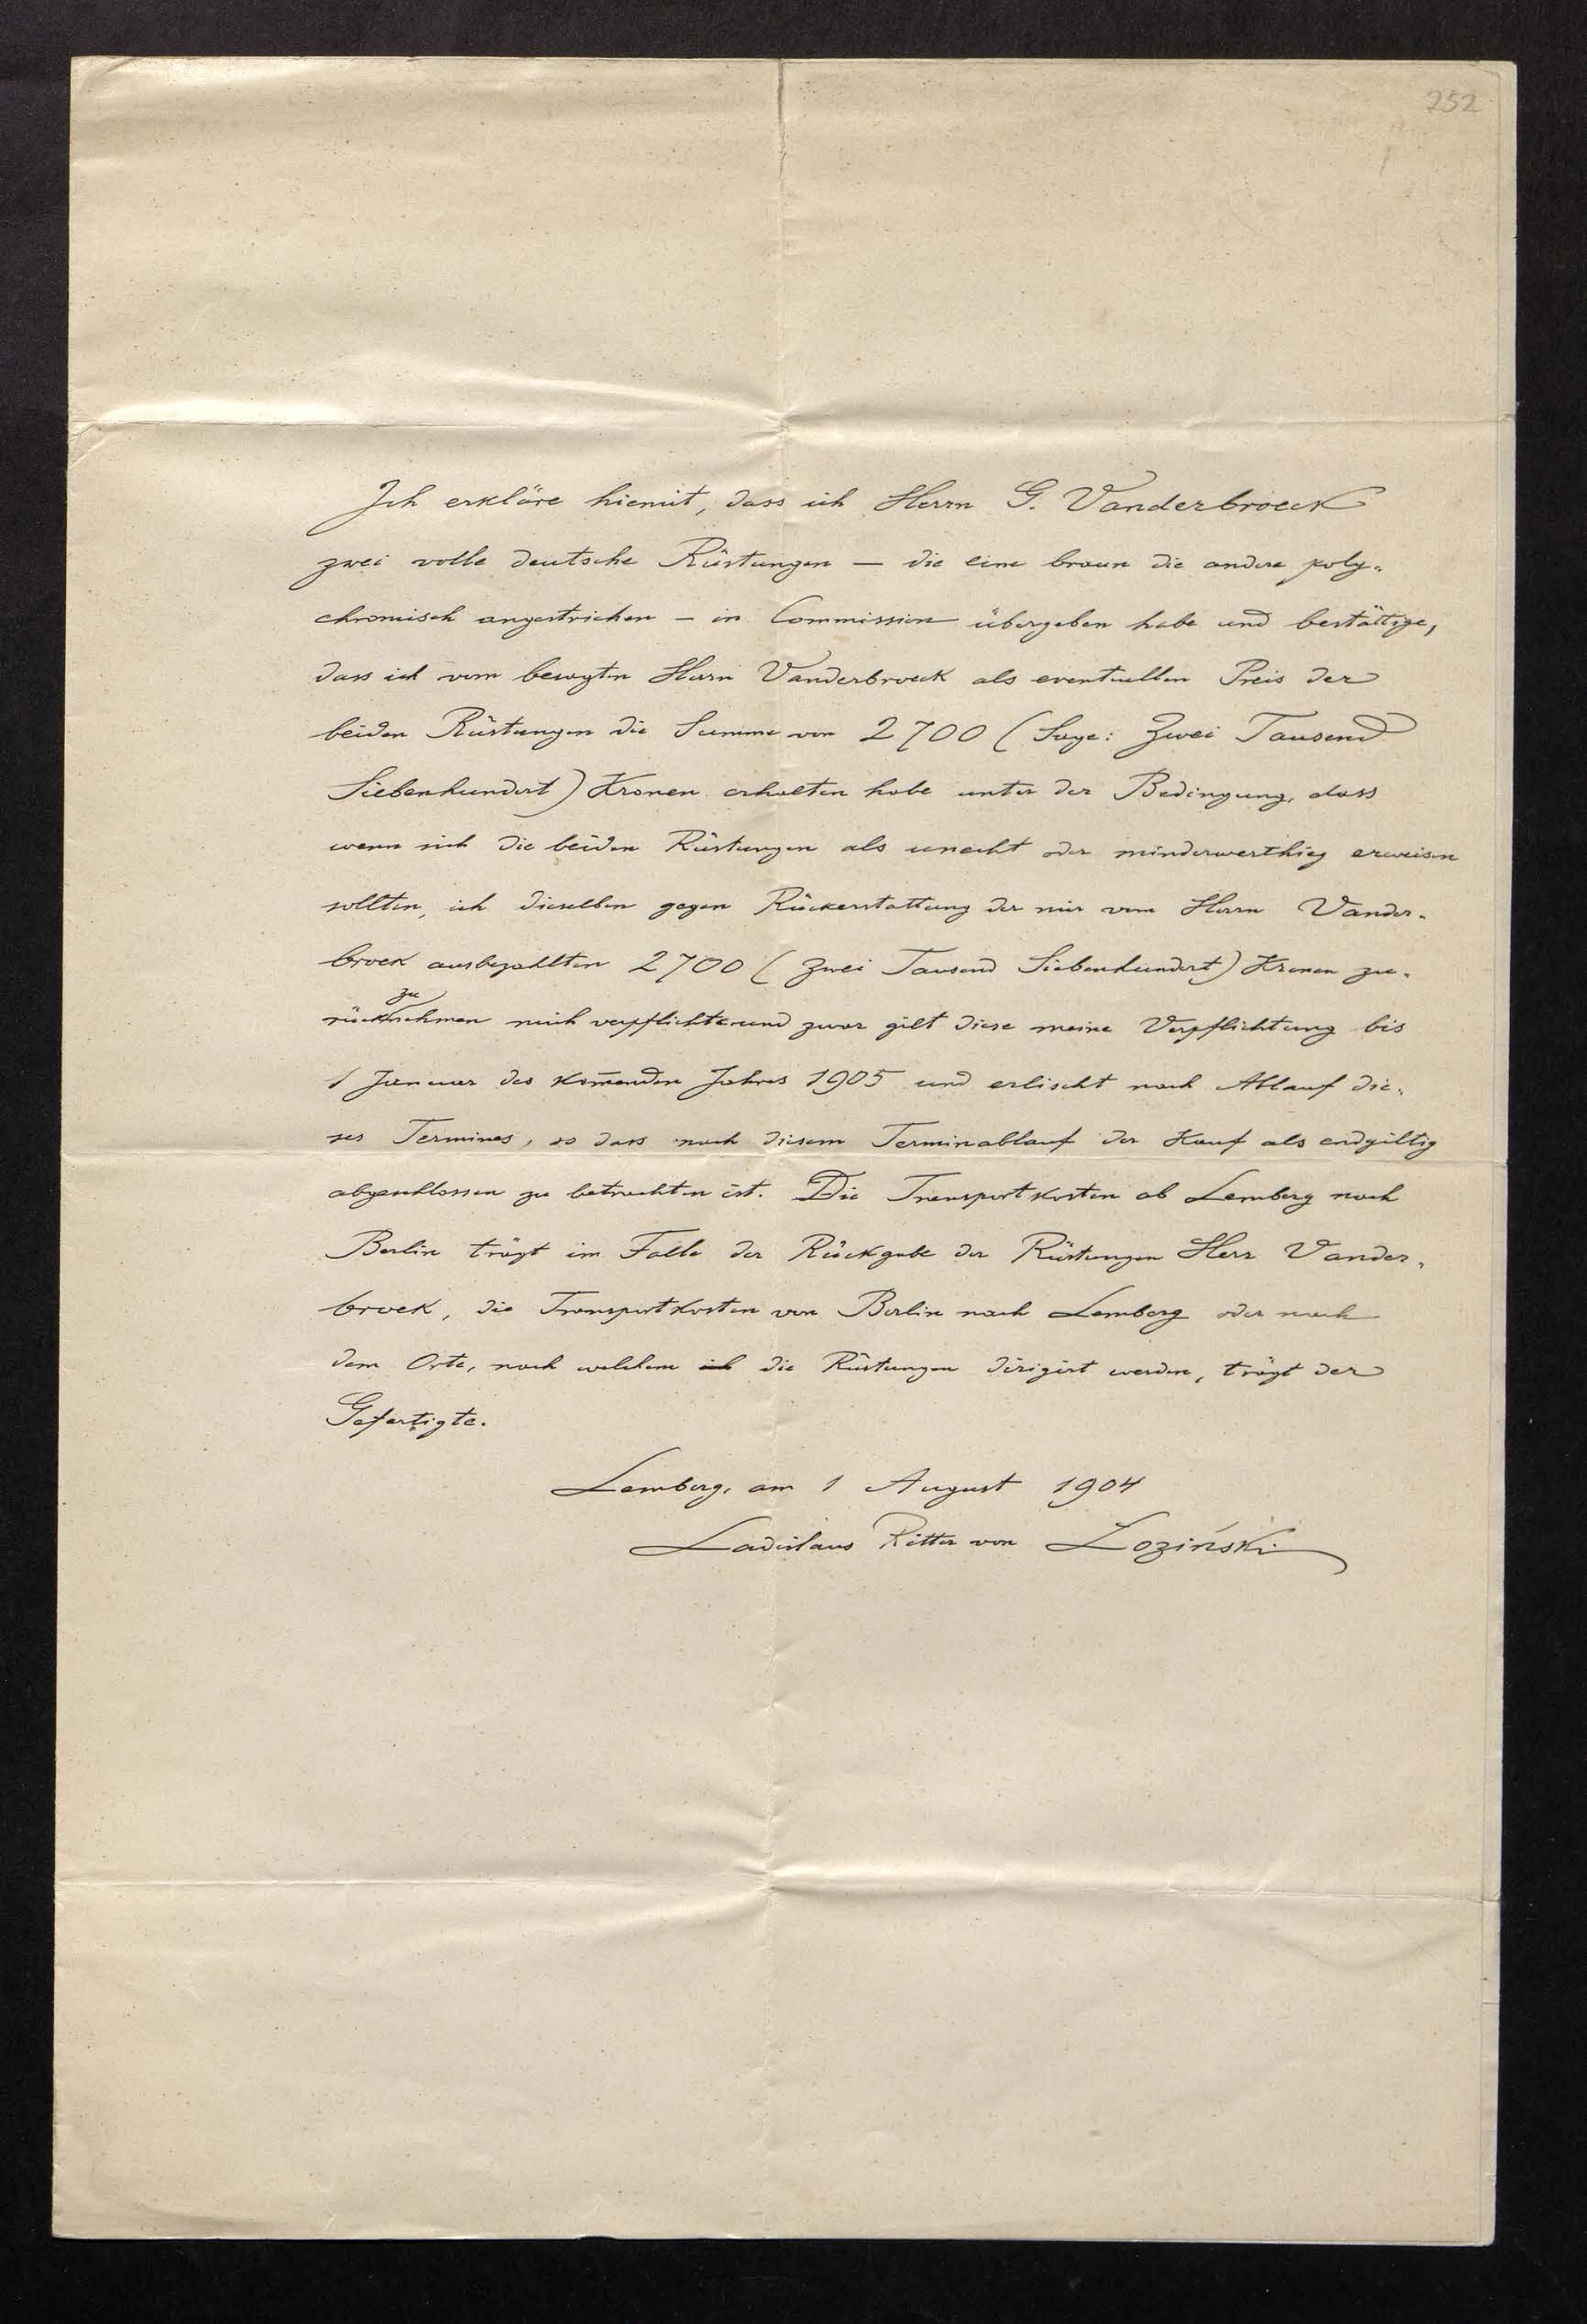 252
Ich erkläre hiemit, dass ich Herrn G. Vanderbroeck
zwei volle deutsche Rüstungen — die eine braun die andere poly-
chromisch angestrichen — in Commission übergeben habe und bestättige,
dass ich vom besagten Herrn Vanderbroeck als eventuellen Preis der
beiden Rüstungen die Summe von 2700 (Sage: Zwei Tausend
Siebenhundert) Kronen erhalten habe unter der Bedingung, dass
wenn sich die beiden Rüstungen als unecht oder minderwerthig erweisen
sollten, ich dieselben gegen Rückerstattung der mir vom Herrn Vander-
broek ausbezahlten 2700 (Zwei Tausend Siebenhundert) Kronen zu-
zu
rücknehmen mich verpflichte und zwar gilt diese meine Verpflichtung bis
1 Januar des kom̄enden Jahres 1905 und erlischt nach Ablauf die-
ses Termines, so dass nach diesem Terminablauf der Kauf als endgiltig
abgeschlossen zu betrachten ist. Die Transportkosten ab Lemberg nach
Berlin trägt im Falle der Rückgabe der Rüstungen Herr Vander-
broek, die Transportkosten von Berlin nach Lemberg oder nach
dem Orte, nach welchem ich die Rüstungen dirigirt werden, trägt der
Gefertigte.
Lemberg, am 1 August 1904
Ladislaus Ritter von Łoziński